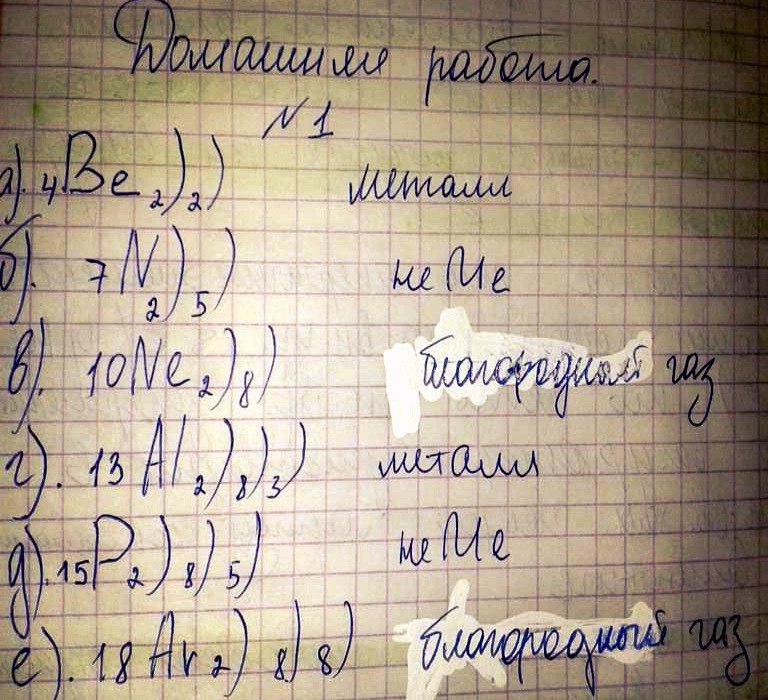 Домашняя работа.
№1
а). 4Be 2)2) металл
б). 7N 2)5) неМе
в). 10Ne 2)8) благородный газ
г). 13Al 2)8)3) металл
д). 15P 2)8)5) неМе
е). 18Ar 2)8)8) благородный газ